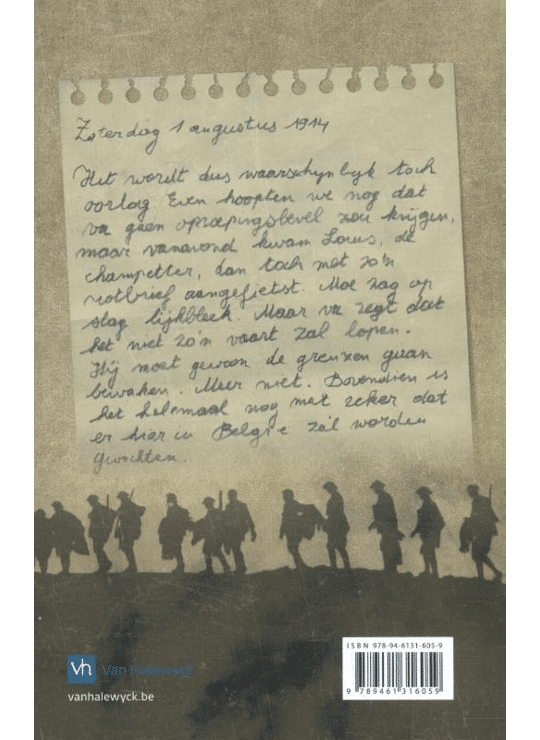 Zaterdag 1 augustus 1914
Het wordt dus waarschijnlijk toch
oorlog. Even hoopten we nog dat
va geen oproepingsbevel zou krijgen,
maar vanavond kwam Louis, de
champetter, dan toch met zo'n
rotbrief aangefietst. Moe zag op
slag lijkbleek. Maar va zegt dat
het niet zo'n vaart zal lopen.
Hij moet gewoon de grenzen gaan
bewaken. Meer niet. Bovendien is
het helemaal nog niet zeker dat
er hier in België zal worden
gevochten.
ISBN 978-94-6131-605-9
9 789461 316059
vh Van Halewyck
vanhalewyck.be